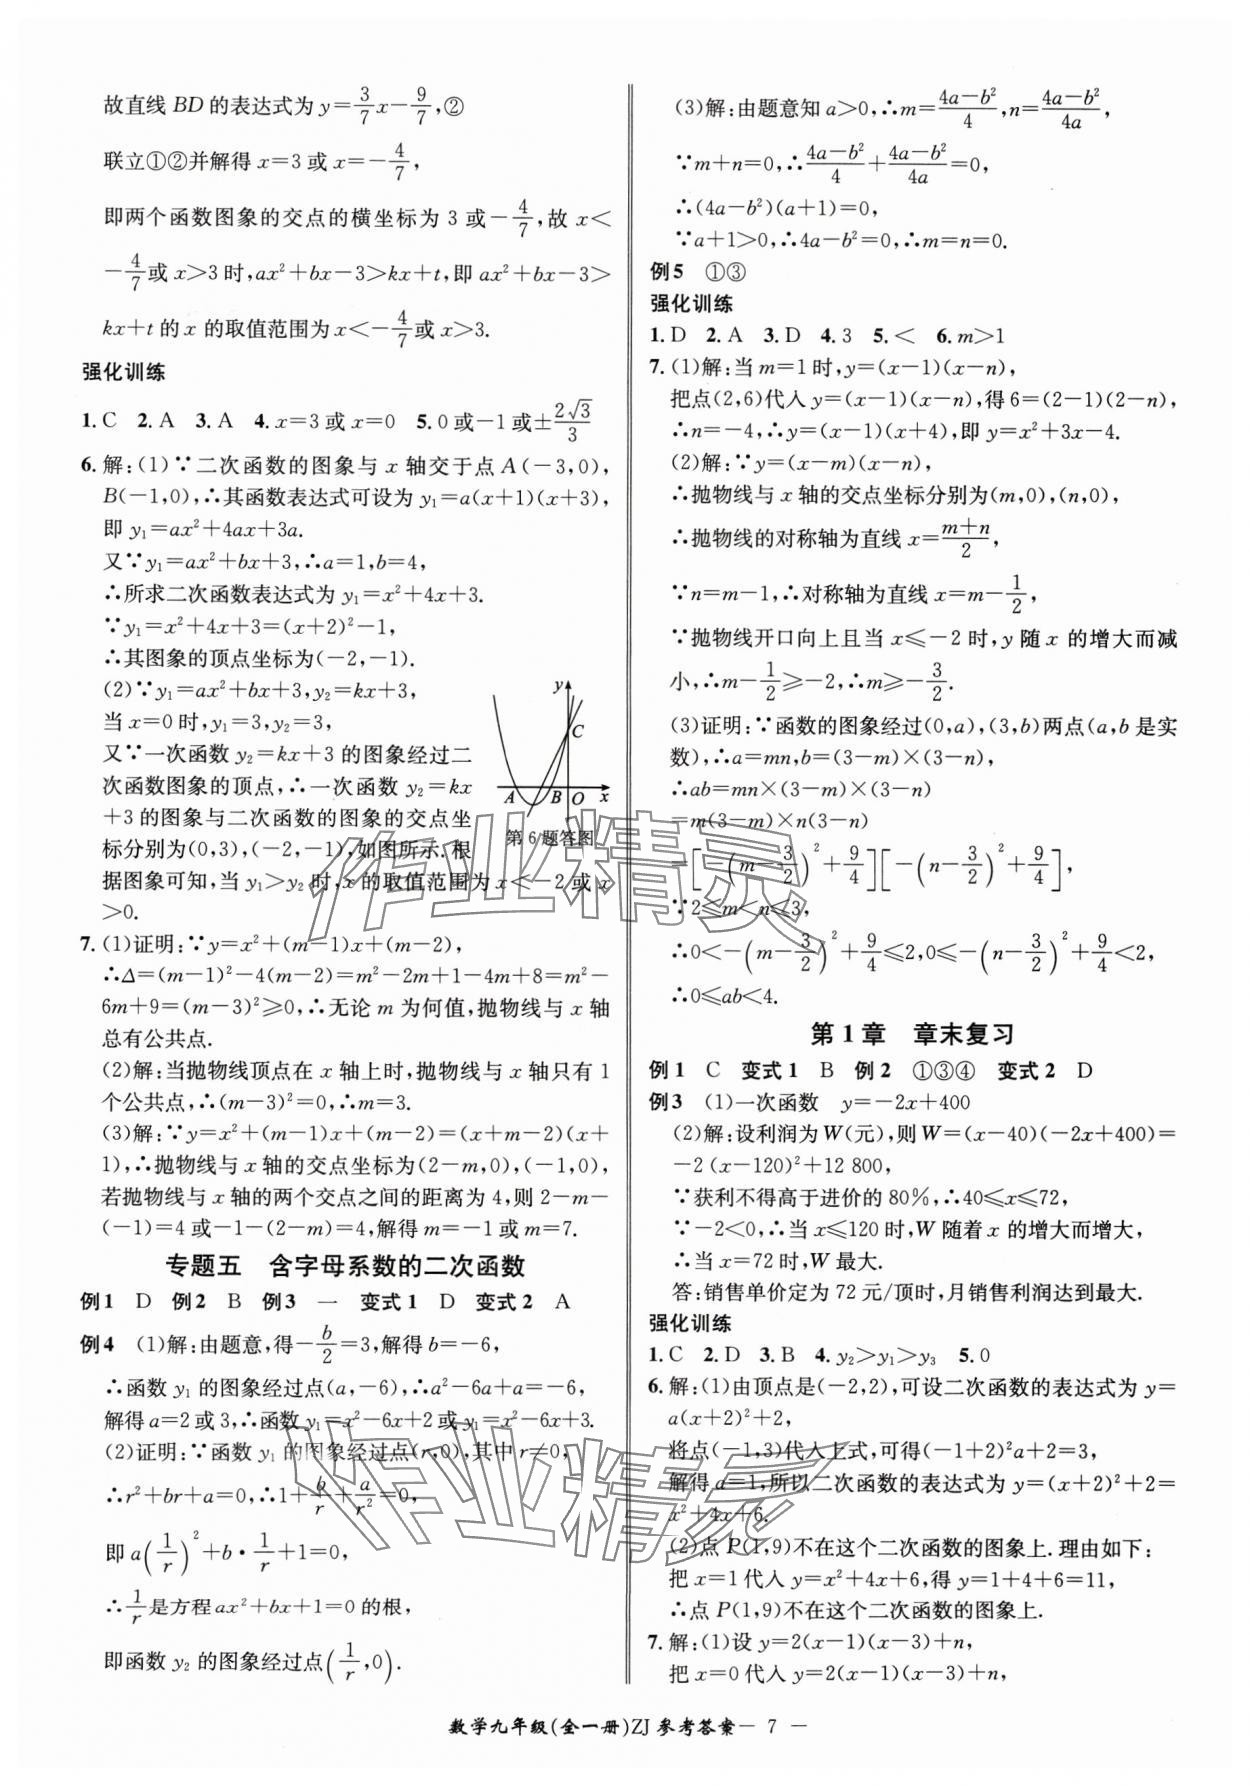 故直线 BD 的表达式为 y=3/7x-9/7,②
联立①②并解得 x=3 或 x=-4/7,
即两个函数图象的交点的横坐标为 3 或-4/7,故 x<
-4/7或 x>3 时,ax²+bx-3>kx+t,即 ax²+bx-3>
kx+t 的 x 的取值范围为 x<-4/7或 x>3.
强化训练
1. C 2. A 3. A 4. x=3 或 x=0 5. 0 或-1 或±2√3/3
6. 解:(1)∵二次函数的图象与 x 轴交于点 A(-3,0),
B(-1,0),∴其函数表达式可设为 y₁=a(x+1)(x+3),
即 y₁=ax²+4ax+3a.
又∵y₁=ax²+bx+3,∴a=1,b=4,
∴所求二次函数表达式为 y₁=x²+4x+3.
∵y₁=x²+4x+3=(x+2)²-1,
∴其图象的顶点坐标为(-2,-1).
(2)∵y₁=ax²+bx+3,y₂=kx+3,
当 x=0 时,y₁=3,y₂=3,
又∵一次函数 y₂=kx+3 的图象经过二
次函数图象的顶点,∴一次函数 y₂=kx
+3 的图象与二次函数的图象的交点坐
标分别为(0,3),(-2,-1),如图所示.根
据图象可知,当 y₁>y₂ 时,x 的取值范围为 x<-2 或 x
>0.
y
C
A B O x
第 6 题答图
7. (1)证明:∵y=x²+(m-1)x+(m-2),
∴Δ=(m-1)²-4(m-2)=m²-2m+1-4m+8=m²-
6m+9=(m-3)²≥0,∴无论 m 为何值,抛物线与 x 轴
总有公共点.
(2)解:当抛物线顶点在 x 轴上时,抛物线与 x 轴只有 1
个公共点,∴(m-3)²=0,∴m=3.
(3)解:∵y=x²+(m-1)x+(m-2)=(x+m-2)(x+
1),∴抛物线与 x 轴的交点坐标为(2-m,0),(-1,0),
若抛物线与 x 轴的两个交点之间的距离为 4,则 2-m-
(-1)=4 或-1-(2-m)=4,解得 m=-1 或 m=7.
专题五 含字母系数的二次函数
例 1 D 例 2 B 例 3 一 变式 1 D 变式 2 A
例 4 (1)解:由题意,得-b/2=3,解得 b=-6,
∴函数 y₁ 的图象经过点(a,-6),∴a²-6a+a=-6,
解得 a=2 或 3,∴函数 y₁=x²-6x+2 或 y₁=x²-6x+3.
(2)证明:∵函数 y₁ 的图象经过点(r,0),其中 r≠0,
∴r²+br+a=0,∴1+b/r+a/r²=0,
即 a(1/r)²+b·1/r+1=0,
∴1/r是方程 ax²+bx+1=0 的根,
即函数 y₂ 的图象经过点(1/r,0).
(3)解:由题意知 a>0,∴m=(4a-b²)/4,n=(4a-b²)/4a,
∵m+n=0,∴(4a-b²)/4+(4a-b²)/4a=0,
∴(4a-b²)(a+1)=0,
∵a+1>0,∴4a-b²=0,∴m=n=0.
例 5 ①③
强化训练
1. D 2. A 3. D 4. 3 5. < 6. m>1
7. (1)解:当 m=1 时,y=(x-1)(x-n),
把点(2,6)代入 y=(x-1)(x-n),得 6=(2-1)(2-n),
∴n=-4,∴y=(x-1)(x+4),即 y=x²+3x-4.
(2)解:∵y=(x-m)(x-n),
∴抛物线与 x 轴的交点坐标分别为(m,0),(n,0),
∴抛物线的对称轴为直线 x=(m+n)/2,
∵n=m-1,∴对称轴为直线 x=m-1/2,
∵抛物线开口向上且当 x≤-2 时,y 随 x 的增大而减
小,∴m-1/2≥-2,∴m≥-3/2.
(3)证明:∵函数的图象经过(0,a),(3,b)两点(a,b 是实
数),∴a=mn,b=(3-m)×(3-n),
∴ab=mn×(3-m)×(3-n)
=m(3-m)×n(3-n)
=[-(m-3/2)²+9/4][-(n-3/2)²+9/4],
∵2≤m<n≤3,
∴0<-(m-3/2)²+9/4≤2,0≤-(n-3/2)²+9/4<2,
∴0≤ab<4.
第 1 章 章末复习
例 1 C 变式 1 B 例 2 ①③④ 变式 2 D
例 3 (1)一次函数 y=-2x+400
(2)解:设利润为 W(元),则 W=(x-40)(-2x+400)=
-2(x-120)²+12 800,
∵获利不得高于进价的 80%,∴40≤x≤72,
∵-2<0,∴当 x≤120 时,W 随着 x 的增大而增大,
∴当 x=72 时,W 最大.
答:销售单价定为 72 元/顶时,月销售利润达到最大.
强化训练
1. C 2. D 3. B 4. y₂>y₁>y₃ 5. 0
6. 解:(1)由顶点是(-2,2),可设二次函数的表达式为 y=
a(x+2)²+2,
将点(-1,3)代入上式,可得(-1+2)²a+2=3,
解得 a=1,所以二次函数的表达式为 y=(x+2)²+2=
x²+4x+6.
(2)点 P(1,9)不在这个二次函数的图象上.理由如下:
把 x=1 代入 y=x²+4x+6,得 y=1+4+6=11,
∴点 P(1,9)不在这个二次函数的图象上.
7. 解:(1)设 y=2(x-1)(x-3)+n,
把 x=0 代入 y=2(x-1)(x-3)+n,
数学九年级(全一册)ZJ 参考答案- 7 -
作业精灵
作业精灵